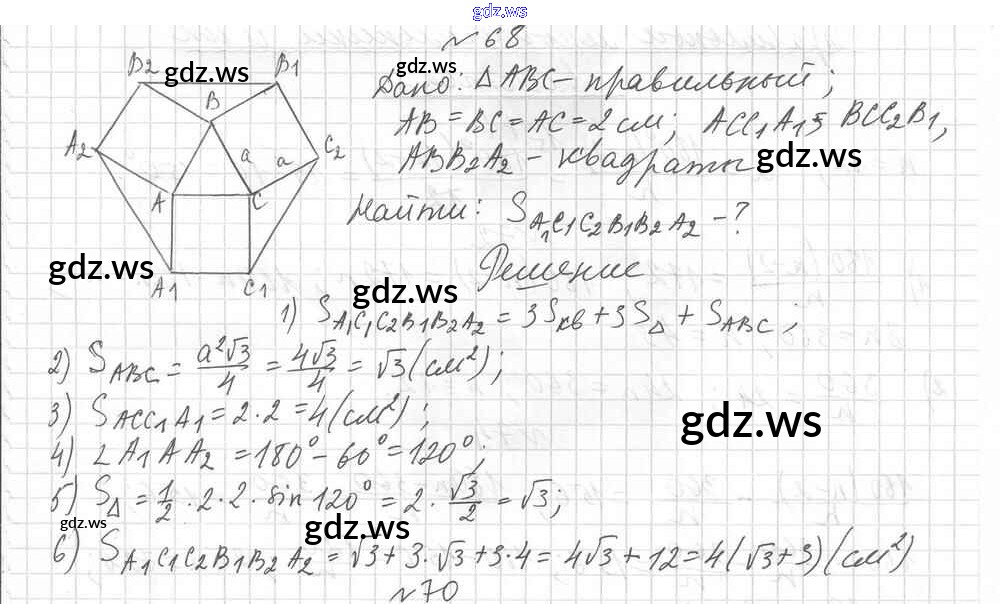 gdz.ws
№ 68
gdz.ws
Дано: △ABC – правильный;
AB = BC = AC = 2 см; ACC1A1, BCC2B1,
ABB2A2 – квадраты
gdz.ws
Найти: S A1C1C2B1B2A2 – ?
Решение
B2 B1
gdz.ws
B
A2 a a C2
A C
gdz.ws
A1 C1
gdz.ws
1) S A1C1C2B1B2A2 = 3Sкв + 3S△ + SABC;
2) SABC = a²√3/4 = 4√3/4 = √3 (см²);
3) SACC1A1 = 2·2 = 4 (см²);
gdz.ws
4) ∠A1AA2 = 180° – 60° = 120°;
5) S△ = 1/2 · 2 · 2 · sin 120° = 2 · √3/2 = √3;
gdz.ws
gdz.ws
6) S A1C1C2B1B2A2 = √3 + 3·√3 + 3·4 = 4√3 + 12 = 4(√3 + 3) (см²)
№ 70